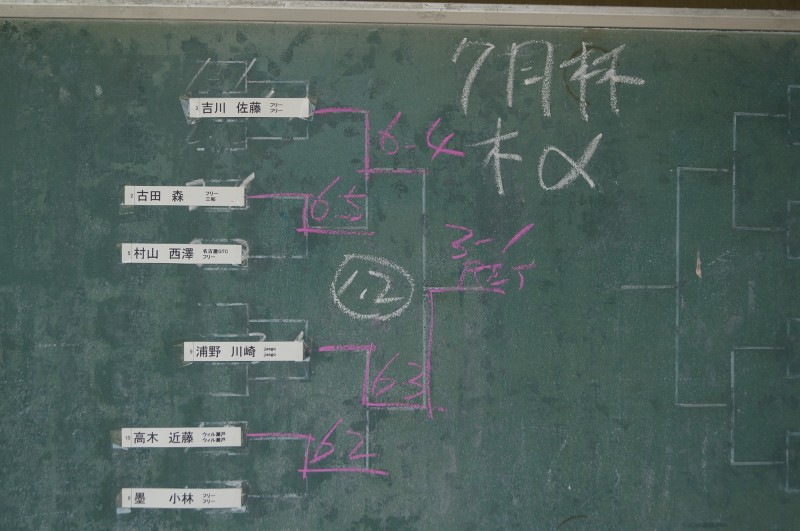 7月杯
木α
吉川 佐藤 フリー フリー
6-4
古田 森 フリー 三和
6 5
村山 西澤 名古屋GTC フリー
3-1
RET
1.2
浦野 川崎
6 3
高木 近藤 ウィル瀬戸 ウィル瀬戸
6 2
墨 小林 フリー フリー